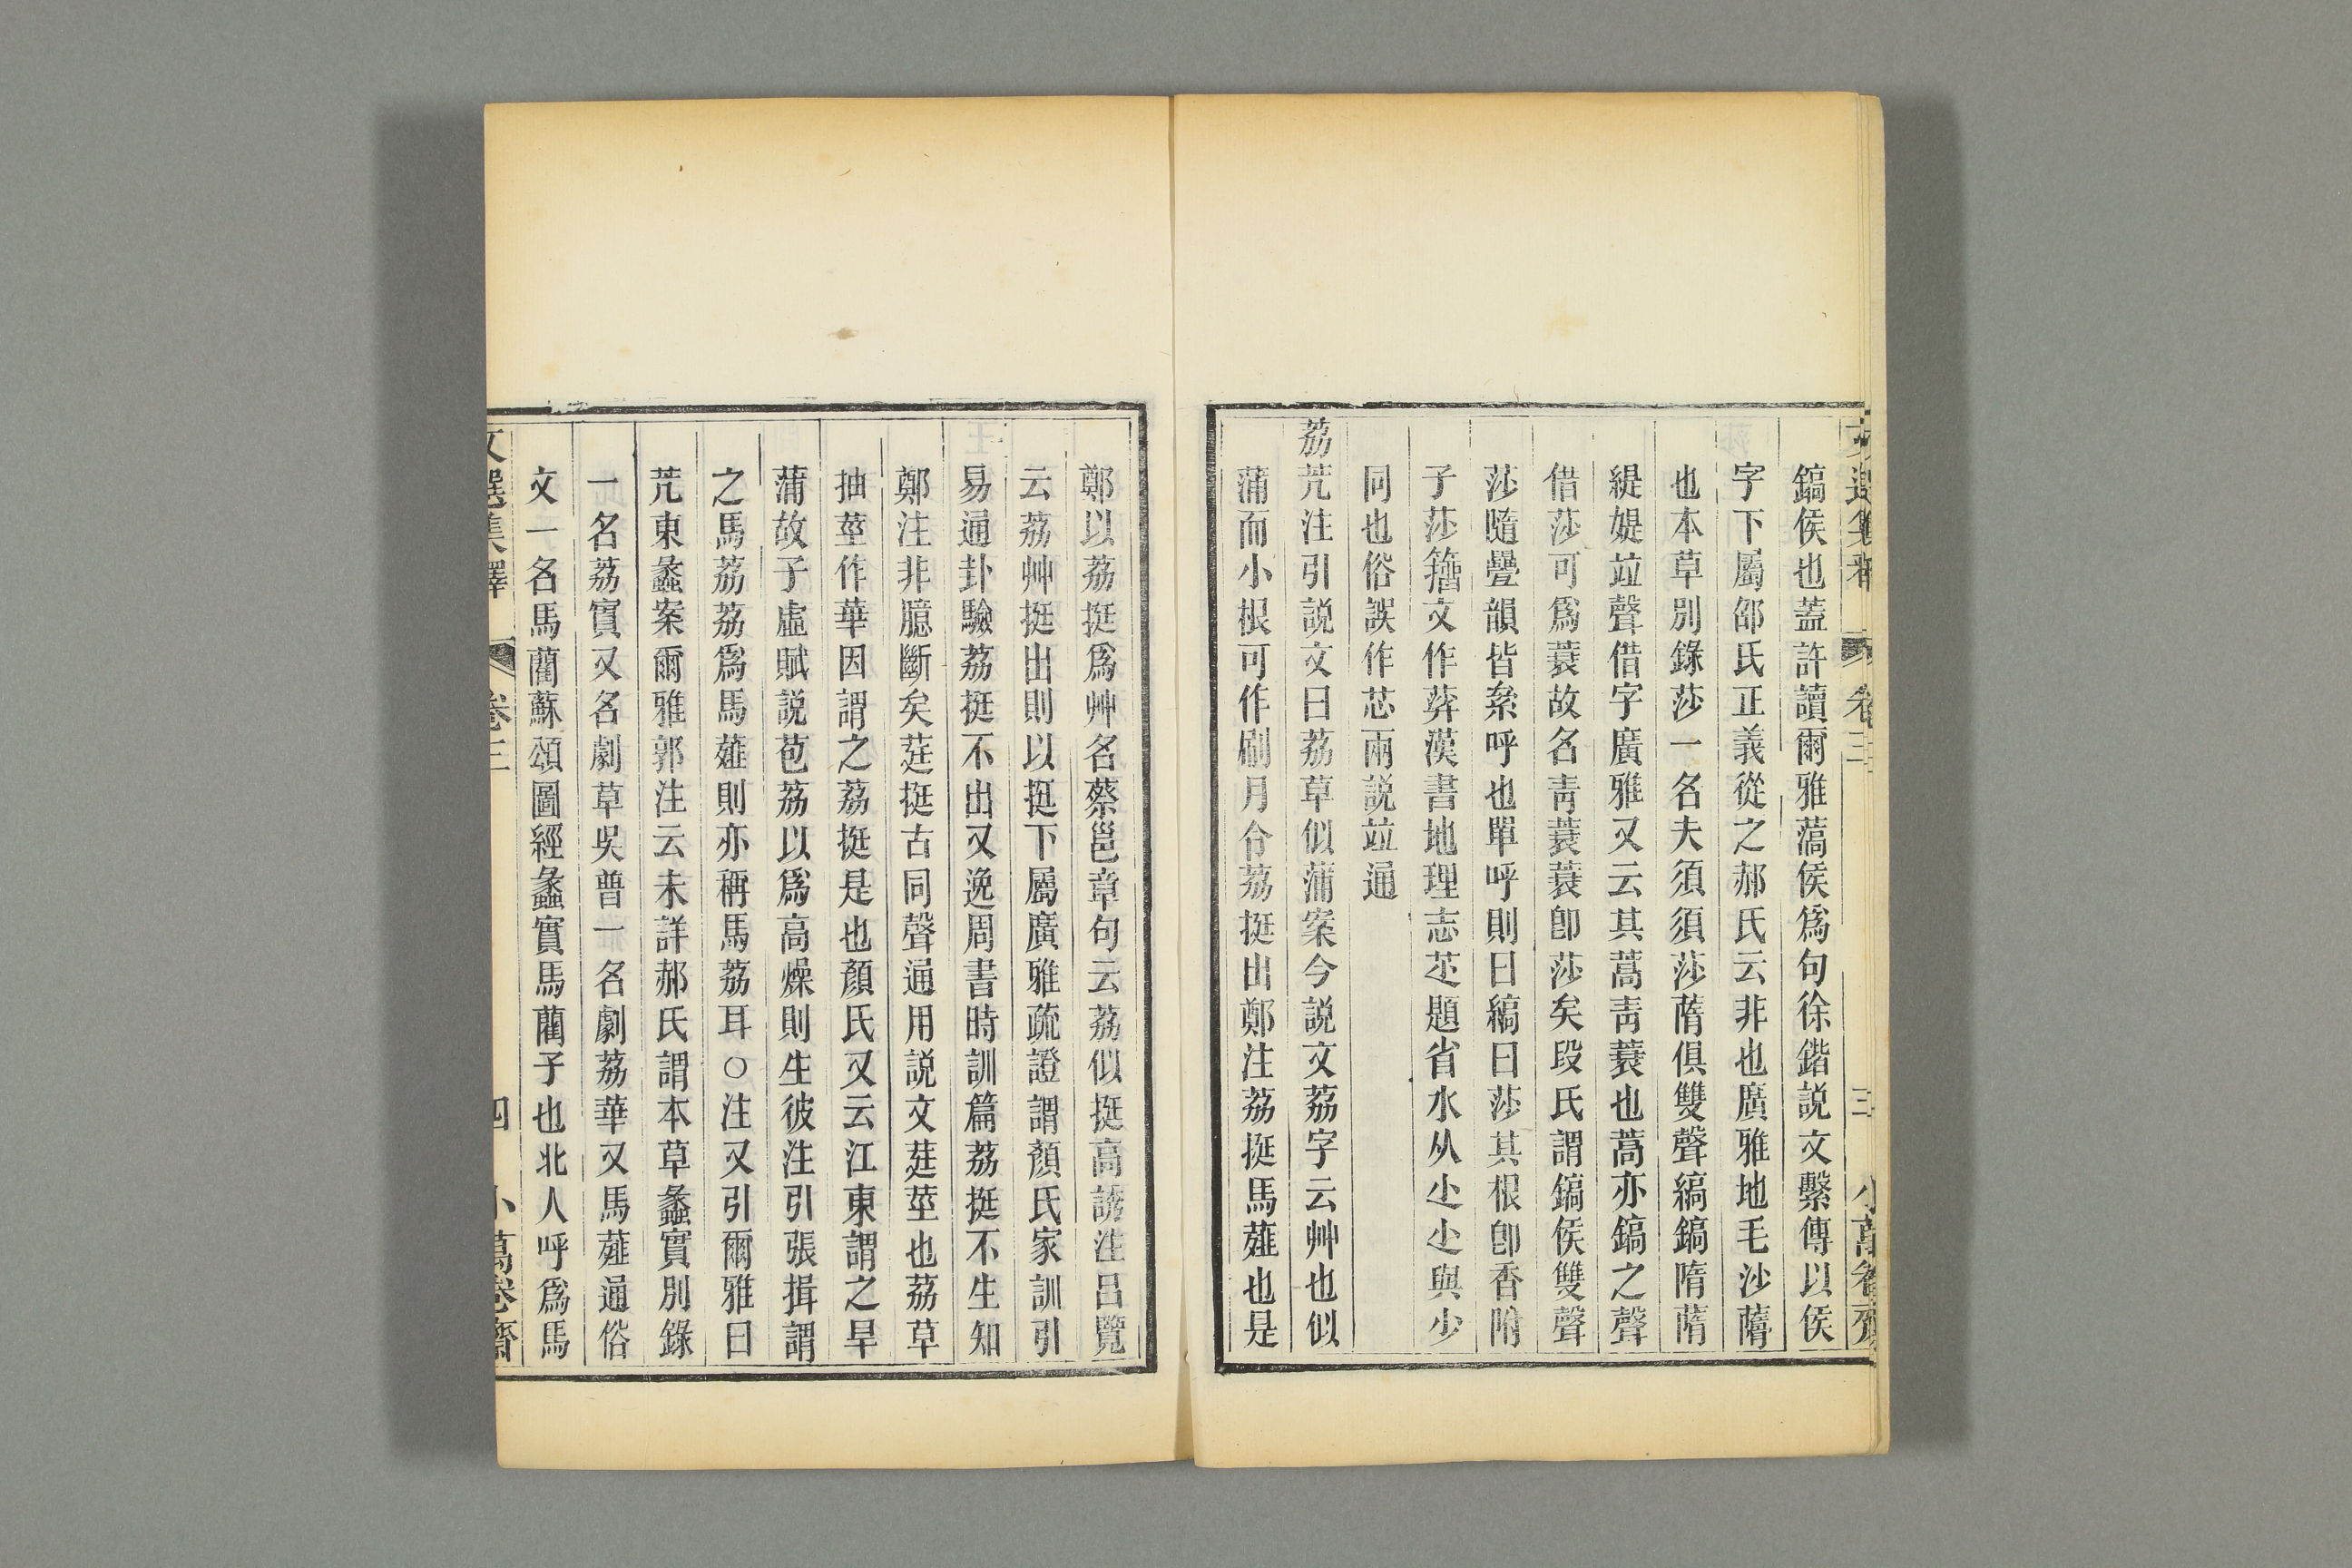 文選集釋 卷三 三 小萬卷齋
鎬侯也蓋許讀爾雅薃侯爲句徐鍇説文繫傳以侯
字下屬邵氏正義從之郝氏云非也廣雅地毛沙蓨
也本草別錄莎一名夫須須莎蓨俱雙聲縞鎬隋蓨
緹媞竝聲借字廣雅又云其蒿靑蓑也蒿亦鎬之聲
借莎可爲蓑故名靑蓑蓑卽莎矣段氏謂鎬侯雙聲
莎隨疊韻皆絫呼也單呼則曰縞曰莎其根卽香附
子莎籒文作蕣漢書地理志莣題省水从尐尐與少
同也俗誤作芯兩説竝通
荔芫注引説文曰荔草似蒲案今説文荔字云艸也似
蒲而小根可作刷月令荔挺出鄭注荔挺馬薤也是
鄭以荔挺爲艸名蔡邕章句云荔似挺高誘注呂覽
云荔艸挺出則以挺下屬廣雅疏證謂顏氏家訓引
易通卦驗荔挺不出又逸周書時訓篇荔挺不生知
鄭注非臆斷矣莛挺古同聲通用説文莛莖也荔草
抽莖作華因謂之荔挺是也顏氏又云江東謂之旱
蒲故子虛賦説苞荔以爲高燥則生彼注引張揖謂
之馬荔荔爲馬薤則亦稱馬荔耳○注又引爾雅曰
芫東蠡案爾雅郭注云未詳郝氏謂本草蠡實別錄
一名荔實又名劇草吳普一名劇荔華又馬薤通俗
文一名馬藺蘇頌圖經蠡實馬藺子也北人呼爲馬
文選集釋 卷三 四 小萬卷齋